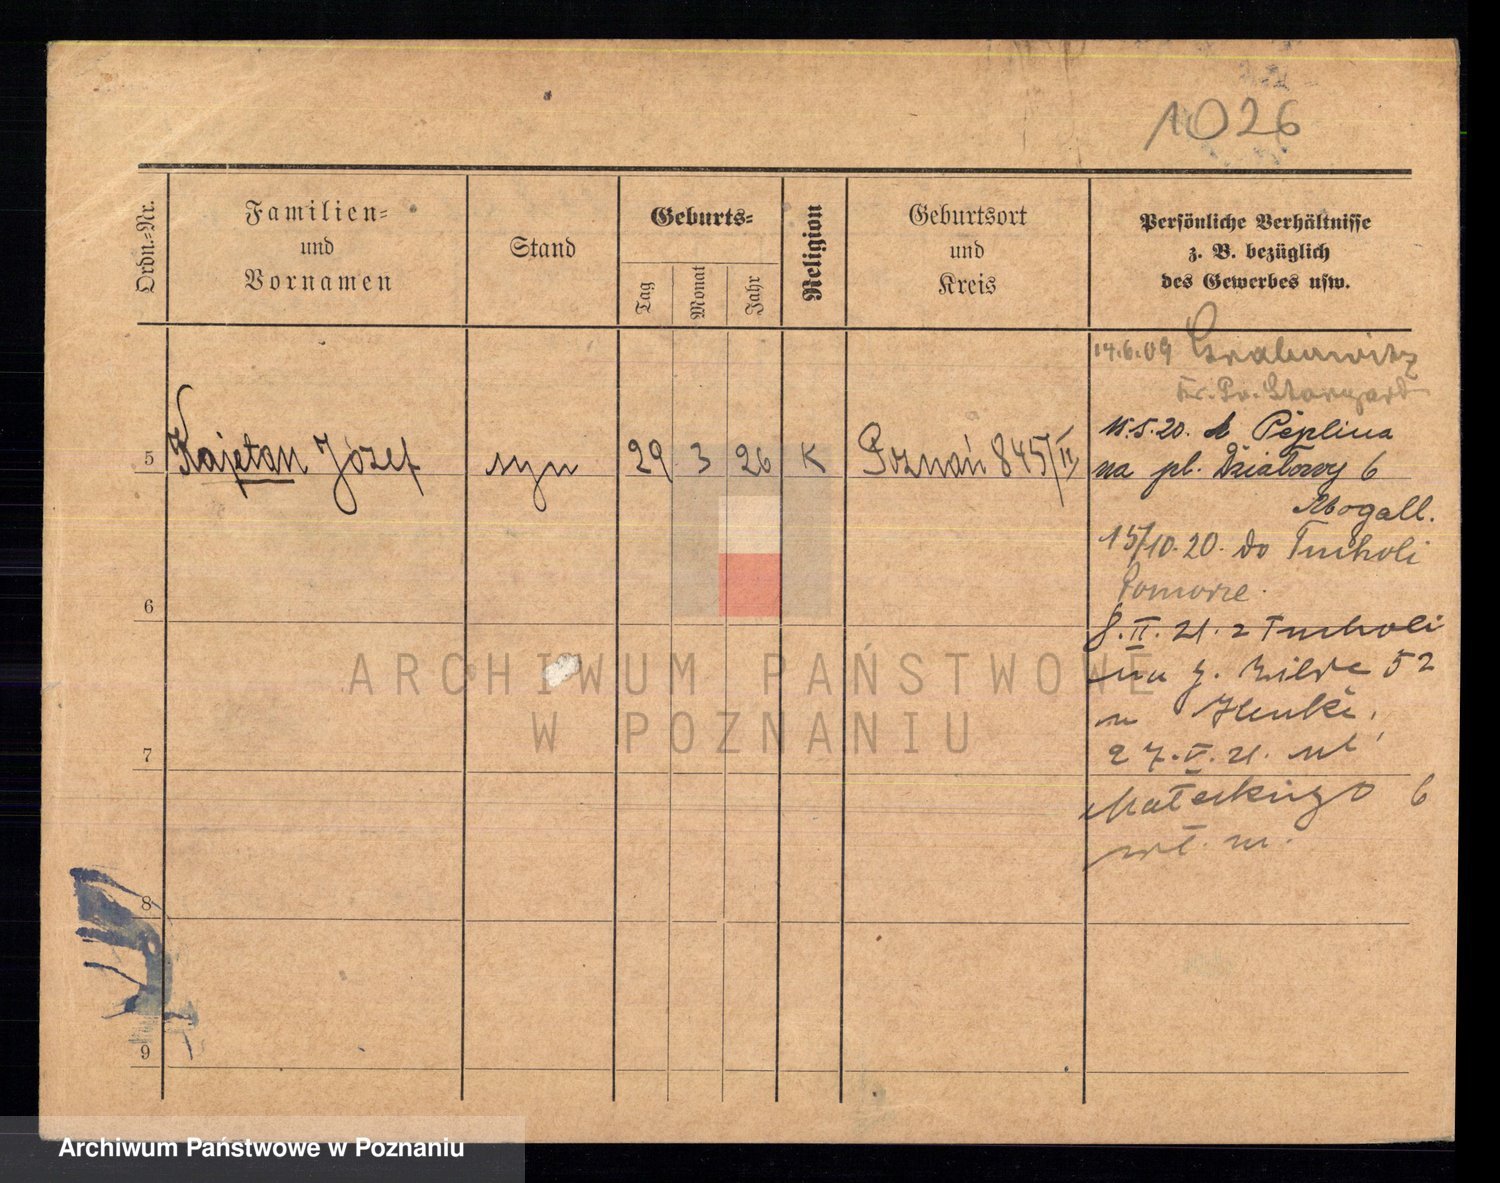 1026
Ordn.-Nr.
Familien-
und
Vornamen
Stand
Geburts-
Tag
Monat
Jahr
Religion
Geburtsort
und
Kreis
Persönliche Verhältnisse
z. B. bezüglich
des Gewerbes usw.
14.6.09 Grabowitz
Kr. Pr. Stargard
5 Kajetan Józef syn 29 3 26 K Poznań 845/II
15.5.20. z Peplina
na pl. Działowy 6
15/10.20. do Tucholi
Pomorze.
6
8.II.21. z Tucholi
na g. Wilde 52
27.V.21. ul
7
Małeckiego 6
wł. m.
8
9
ARCHIWUM PAŃSTWOWE
W POZNANIU
Archiwum Państwowe w Poznaniu